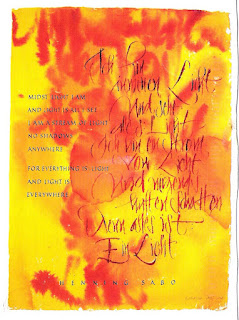 MIDST LIGHT I AM
AND LIGHT IS ALL I SEE
I AM A STREAM OF LIGHT
NO SHADOWS
ANYWHERE
FOR EVERYTHING IS LIGHT
AND LIGHT IS
EVERYWHERE
Ich bin
inmitten Licht
und seh
Licht
Ich bin ein Strom
von Licht
Sind nirgend
Schatten
Denn alles ist
Ein Licht
HENNING SABO